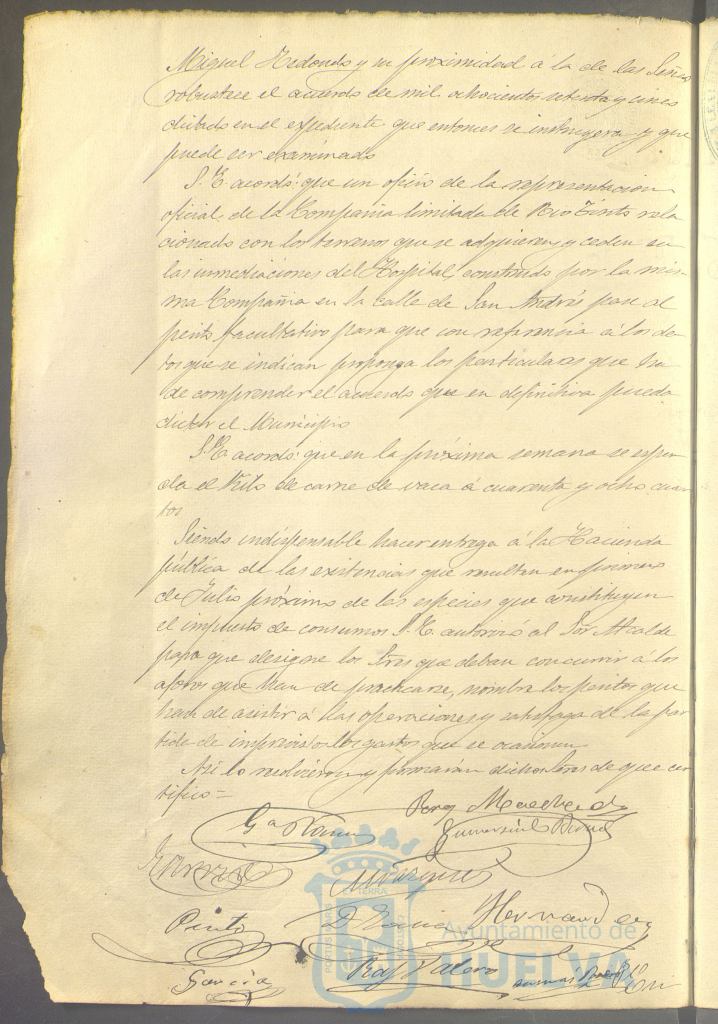 Miguel Redondo y su proximidad a la de las Señas
robustece el acuerdo de mil ochocientos setenta y cinco
dictado en el expediente que entonces se instruyera y que
puede ser examinado
S. E. acordó: que un oficio de la representacion
oficial de la Compañia limitada de Rio Tinto rela
cionado con los terrenos que se adquieren y ceden en
las inmediaciones del Hospital, construido por la mis
ma Compañia en la calle de San Andrés pase al
perito facultativo para que con referencia á los da
tos que se indican proponga los particulares que ha
de comprender el acuerdo que en definitiva pueda
dictar el Municipio
S. E. acordó: que en la próxima semana se espen
da el Kilo de carne de vaca á cuarenta y ocho cuar
tos
Siendo indispensable hacer entrega á la Hacienda
pública de las existencias que resulten en primero
de Julio próximo de las especies que constituyen
el impuesto de consumos S. E. autorizó al Sor Alcalde
para que designe los Sres que deban concurrir á los
aforos que han de practicarse, nombre los peritos que
han de asistir á las operaciones y satisfaga de la par
tida de imprevistos los gastos que se ocasionen
Asi lo resolvieron y firmarán dichos Sres de que cer
tifico=
Gª
Pinto
Hernandez
García
Raf Valero
PORTUS MARIS
ET TERRAE
Ayuntamiento de
HUELVA